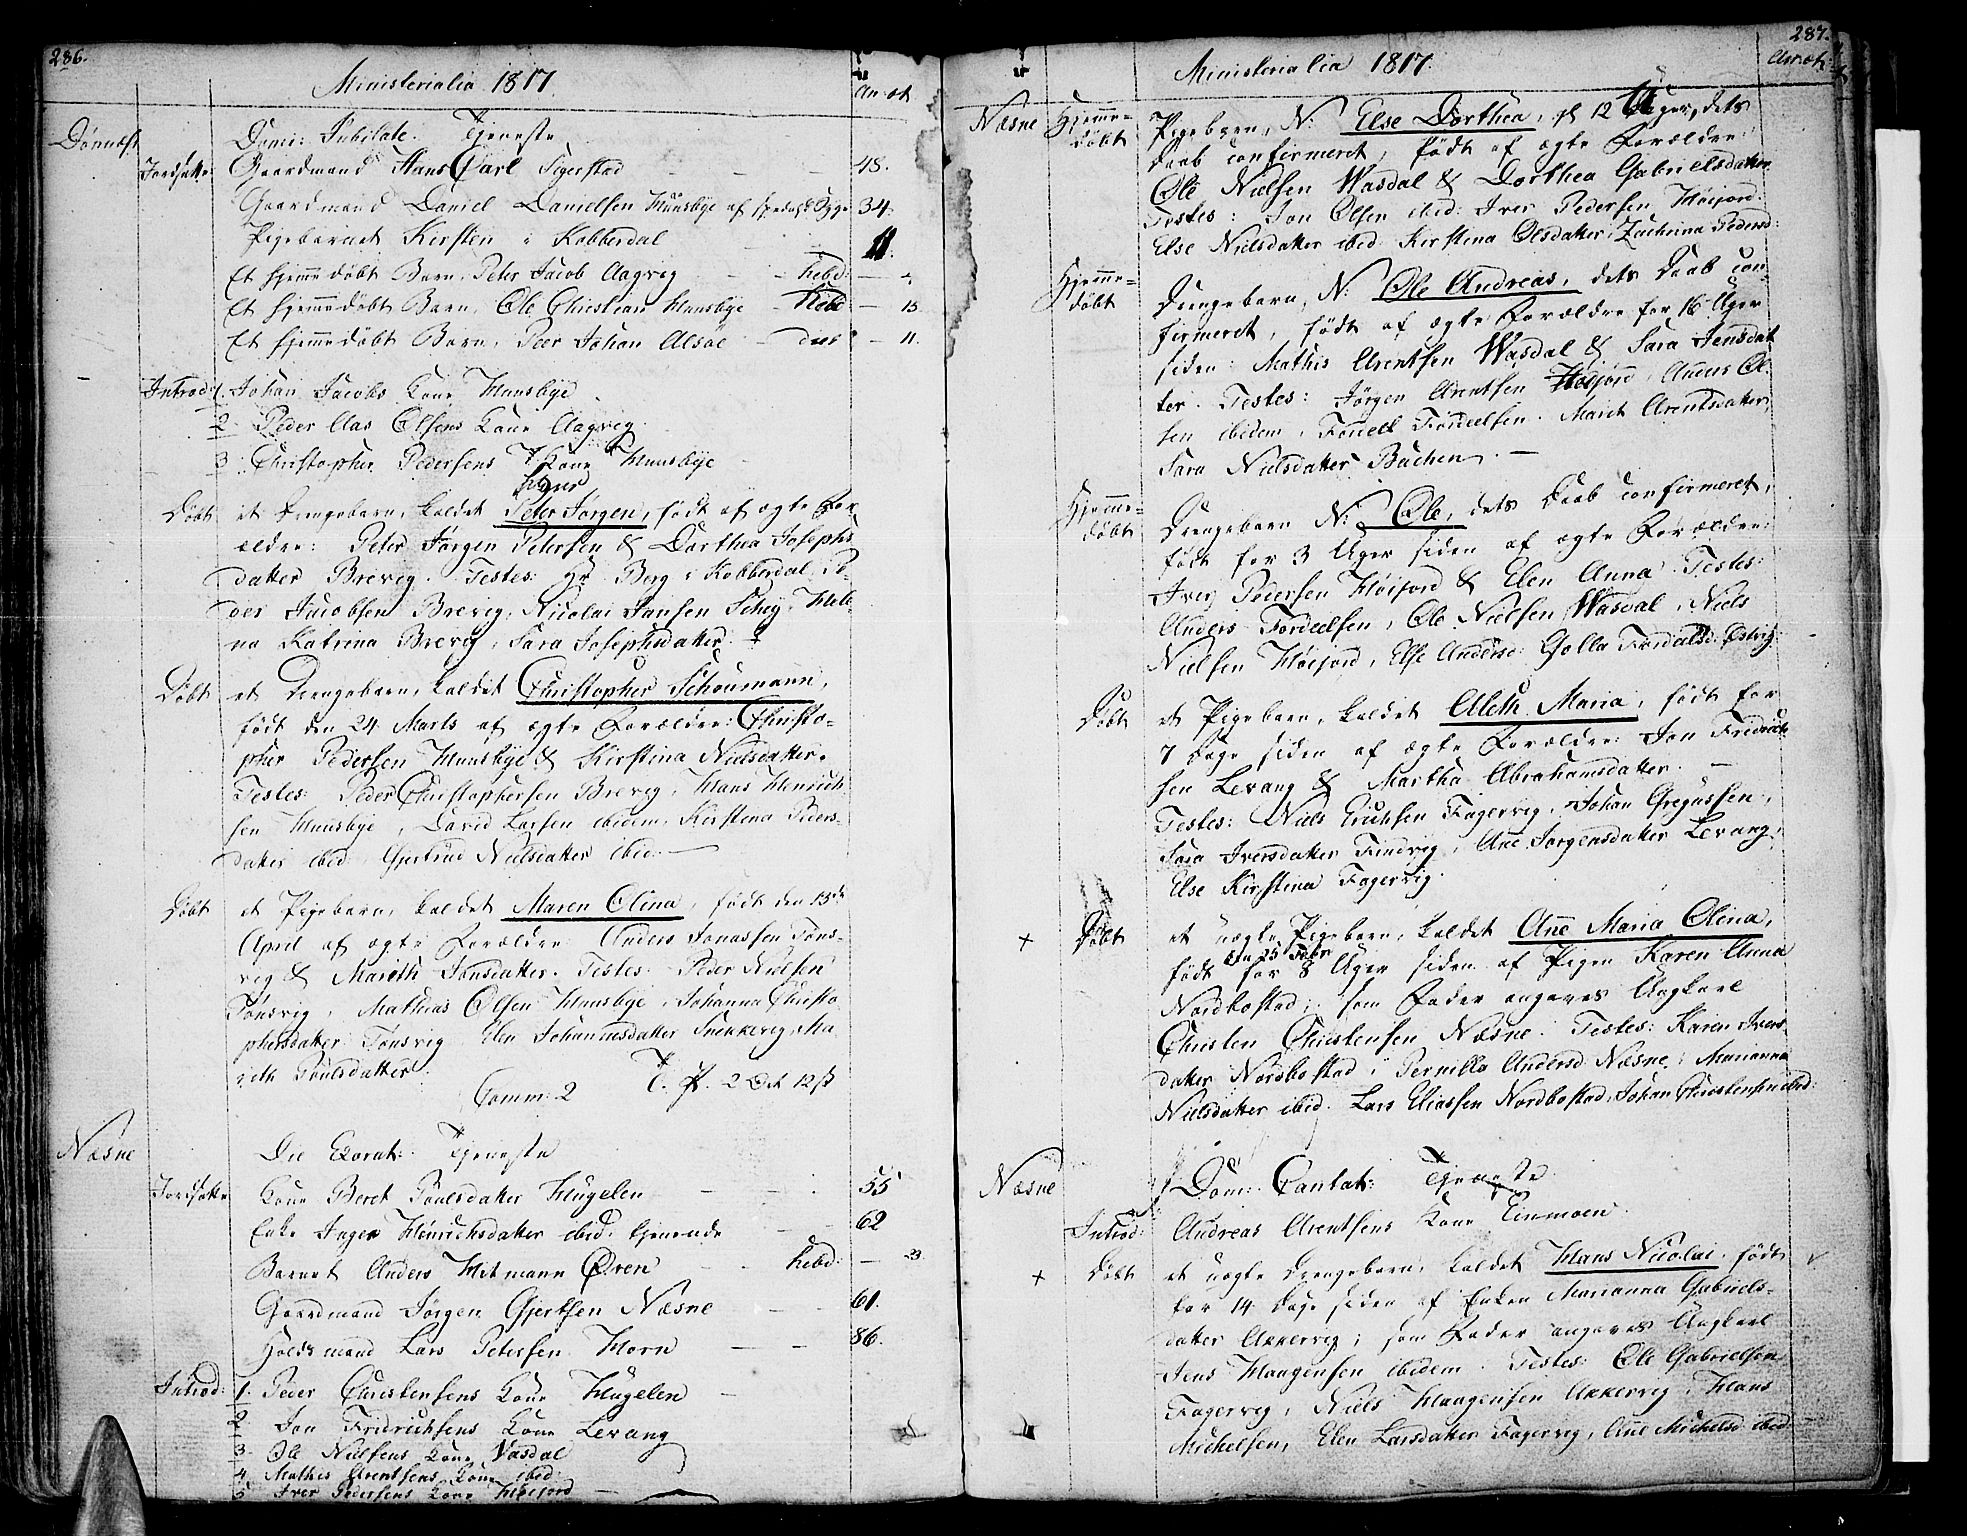 286.
Ministerialia 1817.
An. æt.
Dønnæs
Domi: Jubilate. Tjeneste
Jordfæste Gaardmand Hans Carl Sigerstad 48.
Gaardmand Daniel Danielsen Huusbye af spedalsk Syge 34.
Pigebarnet Kirsten i Kobberdal 11.
Et hjemmedøbt Barn, Peter Jacob Aagvig hebd:
Et hjemmedøbt Barn, Ole Christian Huusbye hebd 15
Et hjemmedøbt Barn, Peer Johan Alsøe dies 11.
Introd: 1. Johan Jacobs Kone Huusbye
2. Peder Aas Olsens Kone Aagvig
3. Christopher Pedersens Kone Huusbye
Døbt et Drengebarn, kaldet Peter Jørgen, født af ægte For-
ældre: Peter Jørgen Petersen & Dorthea Josephs
datter Brevig. Testes: Hr Berg i Kobberdal, Pe-
der Jacobsen Brevig, Nicolai Jansen Schey, Hele
na Katrina Brevig, Sara Josephsdatter
Døbt et Drengebarn, kaldet Christopher Schoumann,
født den 24 Marts af ægte Forældre: Christo-
pher Pedersen Huusbye & Kirstina Nielsdatter.
Testes: Peder Christophersen Brevig, Hans Henrich
sen Huusbye, David Larsen ibidem, Kirstina Peders-
datter ibid, Gjertrud Nielsdatter ibid.
Døbt et Pigebarn, kaldet Maren Olina, født den 13de
April af ægte Forældre Anders Jonassen Tøns-
vig & Mareth Jonsdatter. Testes: Peder Nielsen
Tønsvig, Mathias Olsen Huusbye, Johanna Christo
phersdatter Tønsvig Elen Johannesdatter Snekkevig, Ma-
reth Poulsdatter.
Comm: 2 T. P. 2 Ort 12 ß
Næsne
Die Exorat: Tjeneste
Jordfæste Kone Beret Poulsdatter Hugelen 55
Enke Inger Henrichsdatter ibid. tjenende 62
Barnet Anders Hitmann Øren hebd: 23.
Gaardmand Jørgen Gjertsen Næsne 61.
Holdsmand Lars Petersen Horn 86.
Introd: 1. Peder Christensens Kone Hugelen
2 Jon Fridrichsens Kone Levang
3. Ole Nielsens Kone Vasdal
4. Mathis Arentsens Kone ibid:
5 Iver Pedersens Kone Høiford
287.
Ministerialia 1817.
An. æt.
Næsne Hjemme-
døbt
Pigebarn, N: Else Dorthea, for 12 Uger, dets
Daab confirmeret, født af ægte Forældre:
Ole Nielsen Wasdal & Dorthea Gabrielsdatter
Testes: Jon Olsen ibid: Iver Pedersen Høiford.
Else Nielsdatter ibid. Kirstina Olsdatter, Zachrina Pedersd:
Hjemme-
døbt
Drengebarn, N: Ole Andreas, dets Daab con-
firmeret, født af ægte Forældre for 16 Uger
siden: Mathis Arentsen Wasdal & Sara Jensdat
ter. Testes: Jørgen Arentsen Høiford, Anders Ol-
sen ibidem, Tordell Tordelsen. Marit Arentsdatter,
Sara Nielsdatter Bachen.
Hjemme-
døbt
Drengebarn N: Ole, dets Daab confirmeret,
født for 3 Uger siden af ægte Forældre:
Iver Pedersen Høiford & Elen Anna. Testes:
Anders Tordelsen, Ole Nielsen Wasdal, Niels
Nielsen Høiford, Else Andersd: Golla Tordalsd: Østvig.
Døbt et Pigebarn, kaldet Aleth Maria, født for
7 Dage siden af ægte Forældre: Jon Fridrich
sen Levang & Martha Abrahamsdatter.
Testes: Niels Erichsen Fagervig, Johan Gregussen,
Sara Iversdatter Findvig, Ane Jørgensdatter Levang,
Else Kirstina Fagervig.
+ Døbt et uægte Pigebarn, kaldet Ane Maria Olina,
den 25 Febr
født for 8 Uger siden af Pigen Karen Anna
Nordbostad; som Fader angaves Ungkarl
Christen Christensen Næsne. Testes: Karen Ivers-
datter Nordbostad, Pernilla Andersd Næsne, Marianna
Nielsdatter ibid. Lars Eliassen Nordbostad, Johan Christensen ibid:
Næsne
Dom: Cantat: Tjeneste
Introd: Andreas Arentsens Kone Einmoen.
+ Døbt et uægte Drengebarn, kaldet Hans Nicolai, født
for 14 Dage siden af Enken Marianna Gabriels-
datter Akkervig; som Fader angaves Ungkarl
Jens Haagensen ibidem. Testes: Ole Gabrielsen
Fagervig, Niels Haagensen Akkervig, Hans
Michelsen, Elen Larsdatter Fagervig, Ane Michelsd ibid